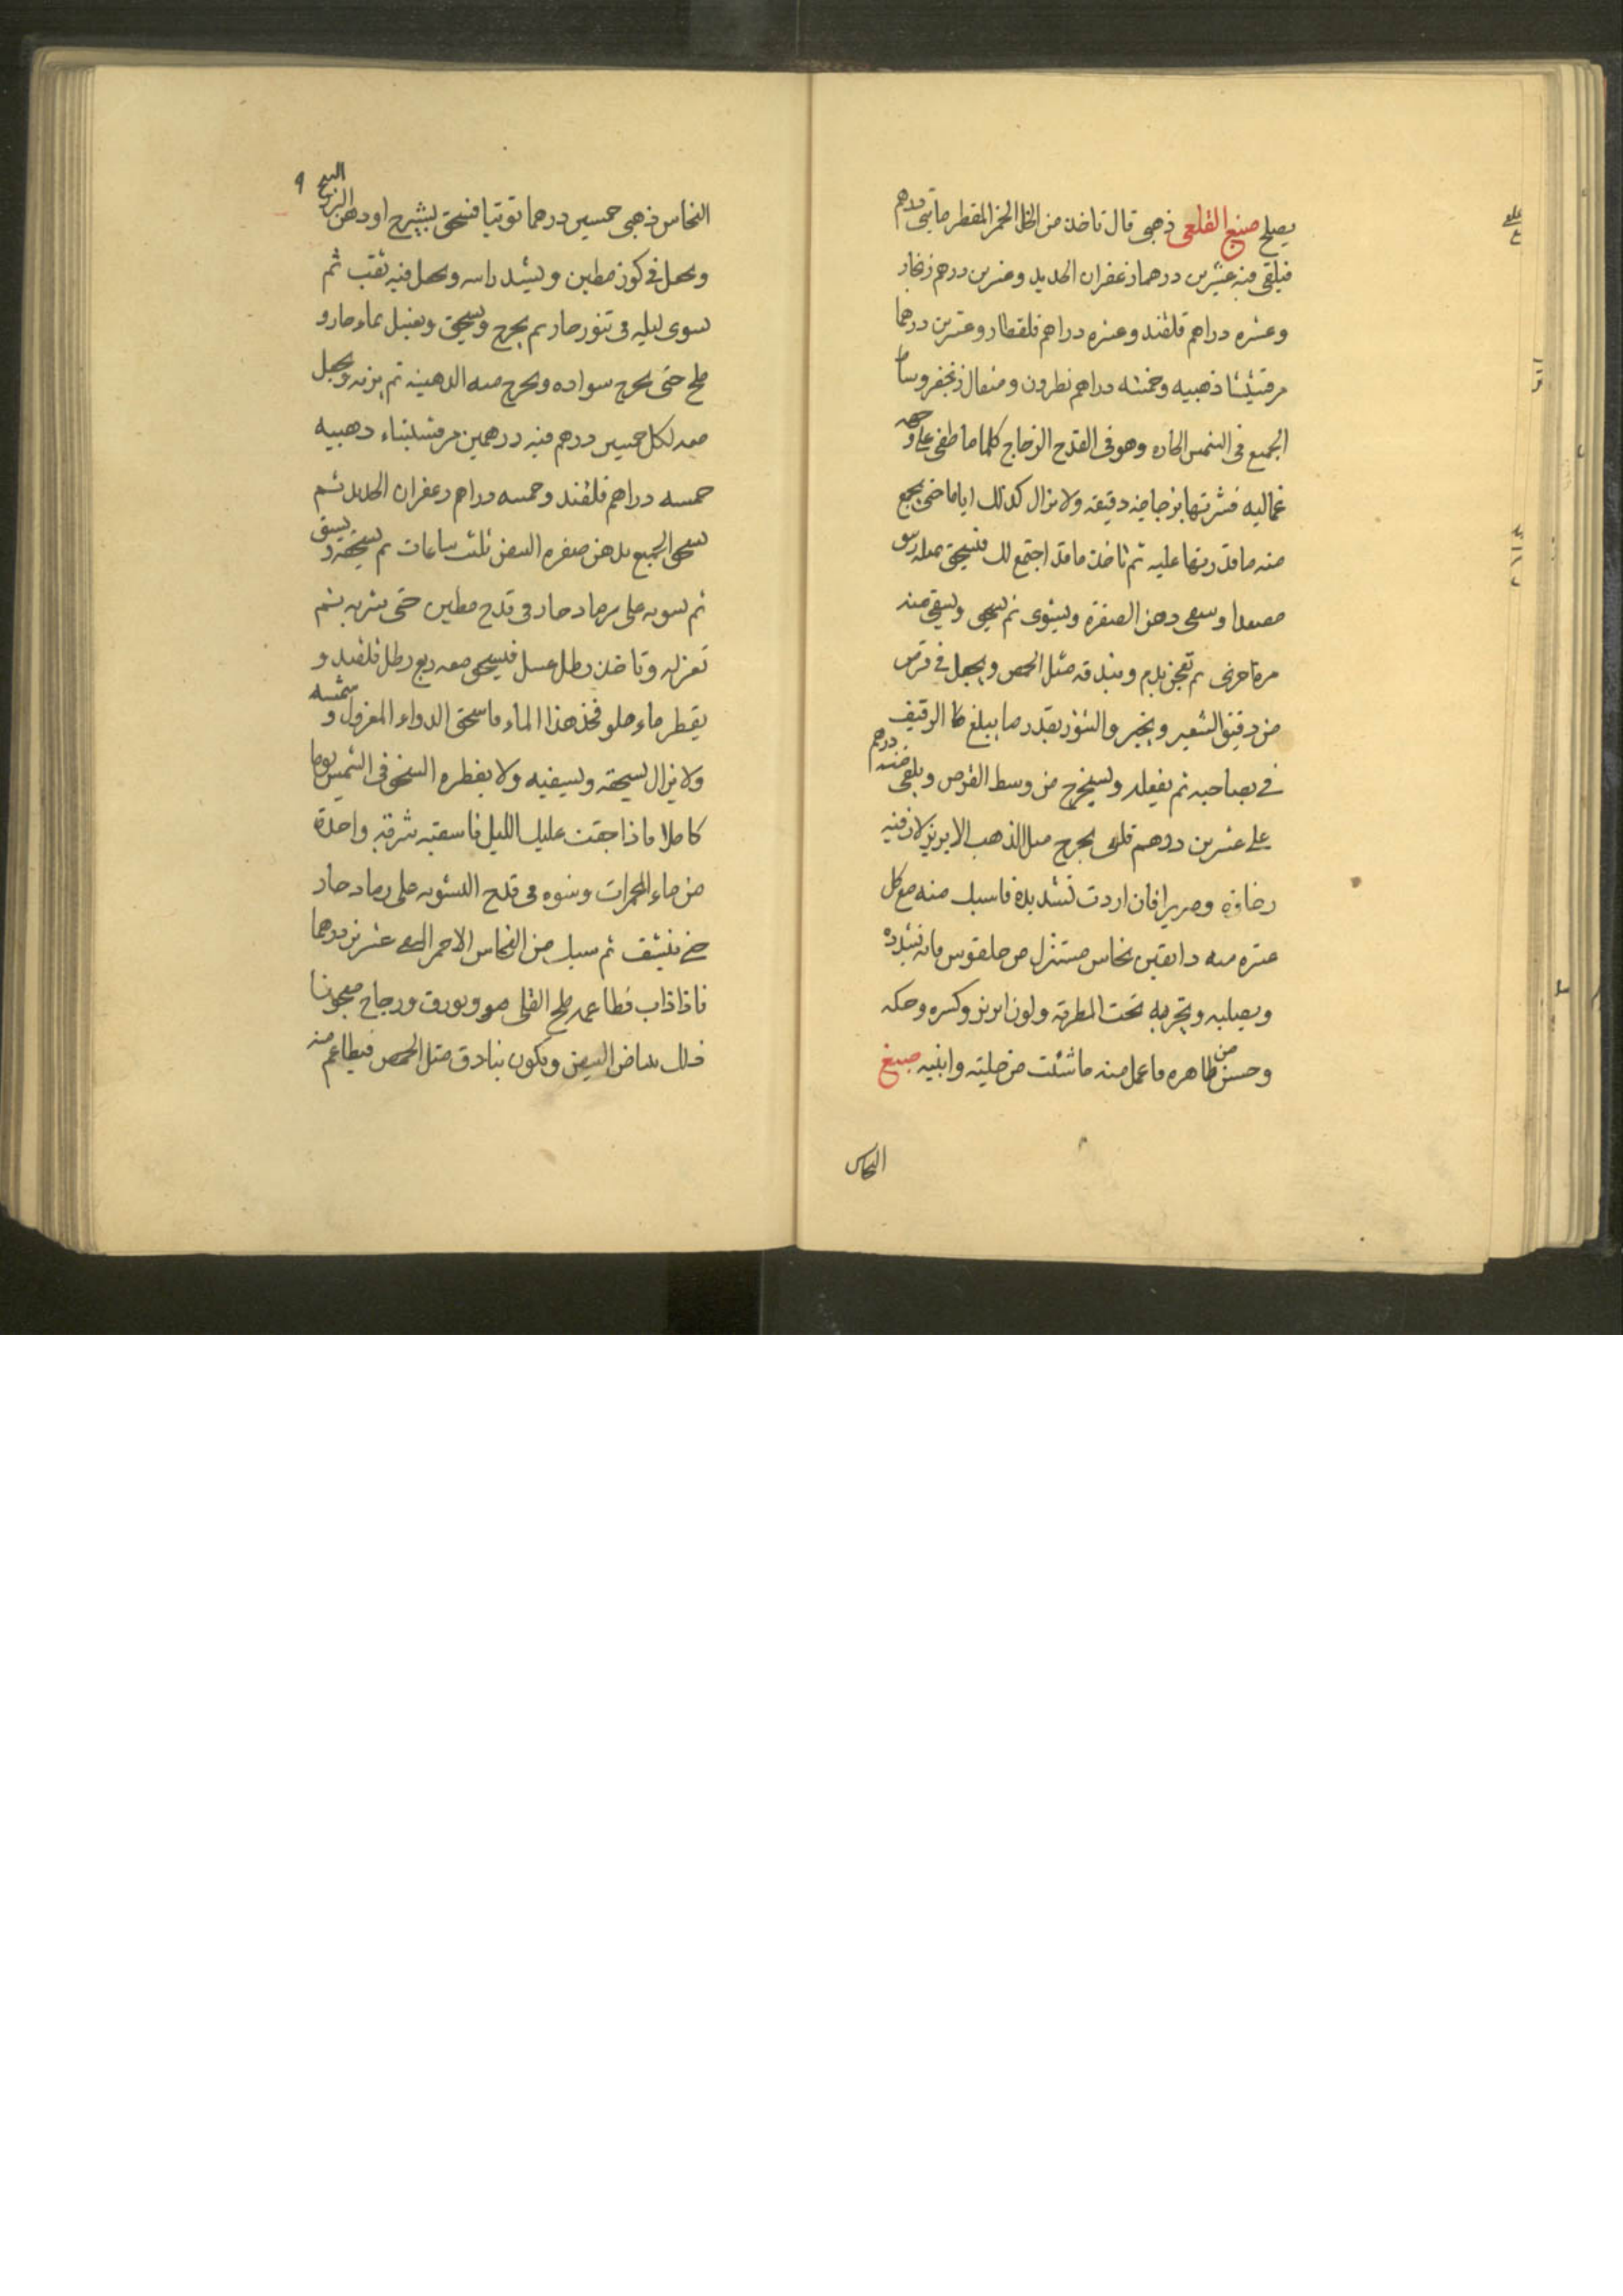 يصلح صبغ القلعى ذهبى قال تاخذ من الخل الخمر المقطر مايتى درهم
فيلقى فيه عشرين درهما زعفران الحديد وعشرين درهم زنجار
وعشره دراهم قلقند وعشره دراهم قلقطار وعشرين درهما
مرقشيثا ذهبيه وخمسه دراهم نطرون ومثقال زنجفر
الجميع فى الشمس الحاره وهو فى القدح الزجاج كلما ما طفى على وجهه
دقيقه ولا يزال كذلك اياما حتى يجمع
منه ما قدرتها عليه ثم تاخذ ما قد اجتمع لك فتسحق
مصعدا وسقى دهن الصفرة ويشوى ثم يسحق ويسقى منه
مرة اخرى ثم تعجن بدم وبندقه مثل الحمص ويجعل فى قرص
من دقيق الشعير ويخبز والتنور بقدر ما يبلغ
فى صاحبه ثم يفعله ويستخرج من وسط القرص ويلقى منه درهم
على عشرين درهم قلعى يخرج مثل الذهب الابريز لان فيه
رخاوة وصريرا فان اردت تشديده فاسبك منه مع كل
عشره منه دانقين نحاس مستنزل من حلقوس فانه تشدده
ويصلبه ويجربه تحت المطرقه ولون ابريز وكسره وحكه
وحسن من ظاهره فاعمل منه ما شئت من حليته وابنيه صبغ
النحاس
٩
النحاس ذهبى خمسين درهما توتيا فتسحق بشيرج او دهن البزر
ويجعل فى كوز مطين ويشد راسه ويجعل فيه ثقب ثم
يشوى ليله فى تنور حار ثم يخرج ويسحق ويغسل بماء حار و
ملح حتى يخرج سواده ويخرج منه الدهينه ثم يزنه ويجعل
معه لكل خمسين درهم منه درهمين مرقشيثاء ذهبيه
خمسه دراهم قلقند وخمسه دراهم زعفران الحديد ثم
يسحق الجميع بدهن صفره البيض ثلث ساعات ثم يسحقه ويسقى
ثم يشويه على رماد حار فى قدح مطين حتى يشربه ثم
تعزله وتاخذ رطل عسل فيسحق معه ربع رطل قلقند و
يقطر ماء حلو فخذ هذا الماء فاسحق الدواء المعزول وشمسه
ولا يزال يسحقه ويسقيه ولا يفطره السحق فى الشمس يوما
كاملا فاذا جنت عليك الليل فاسقته شرقه واحدة
من ماء المحمرات وشوه فى قدح التشويه على رماد حار
حتى ينشف ثم سبك من النحاس الاحمر النقى عشرين درهما
فاذا ذاب فطاعمه ملح القلى وبورق وزجاج معجونا
ذلك ببياض البيض ويكون بنادق مثل الحمص فيطاعم منه